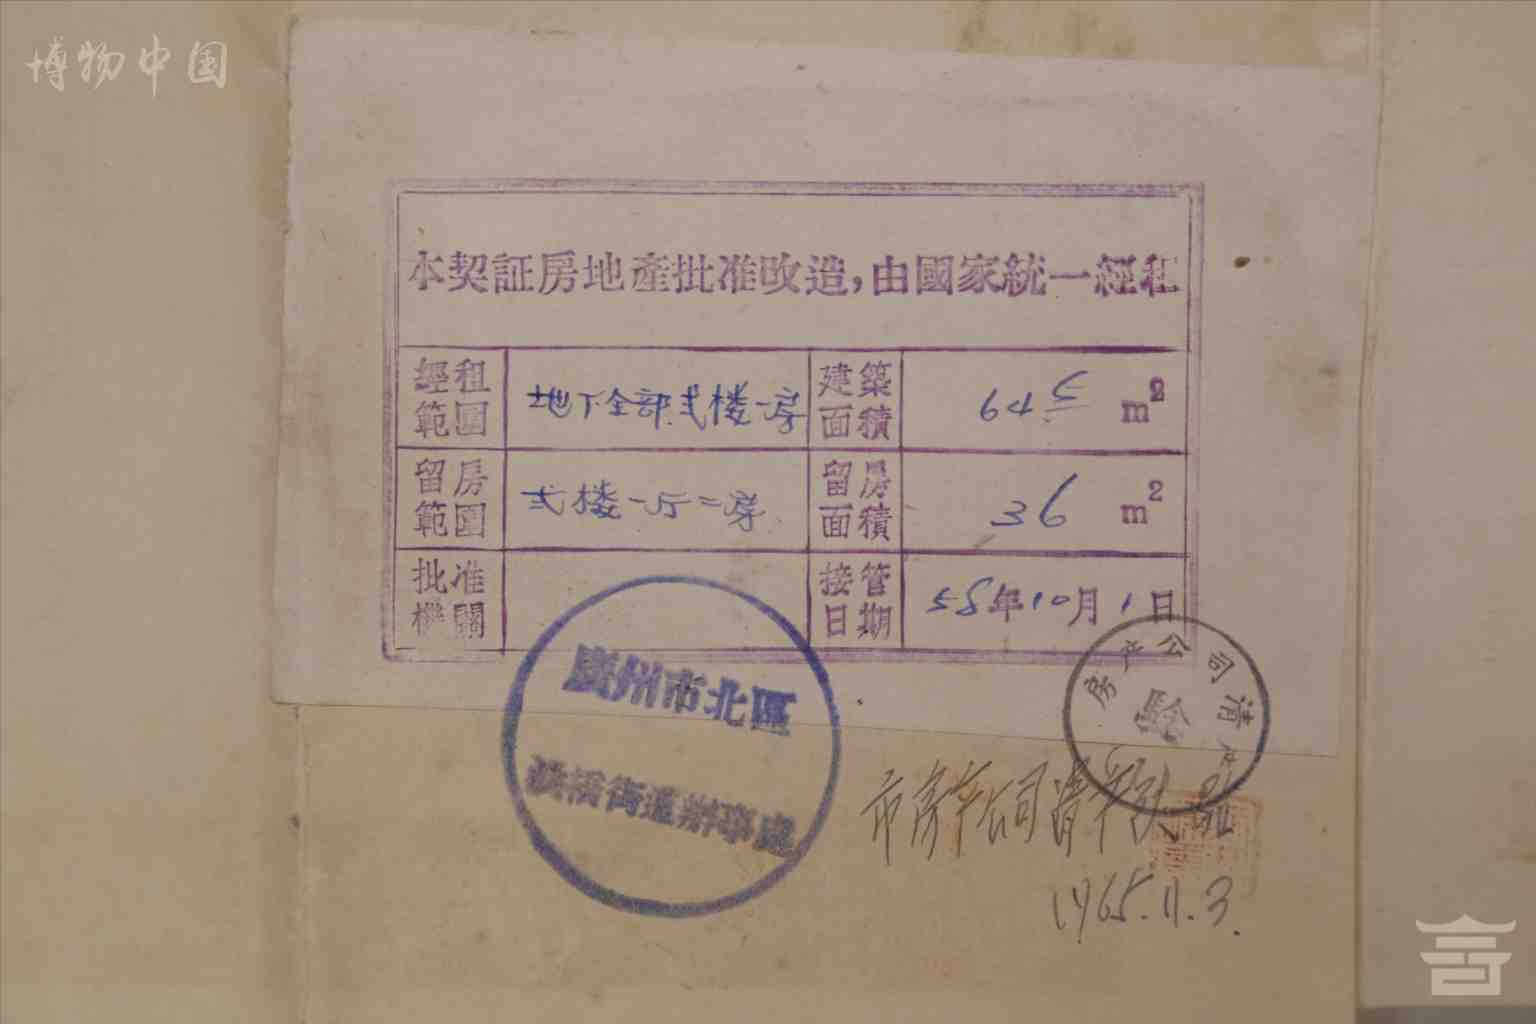 博物中国
本契証房地產批准改造，由國家統一經租
經租範圍 地下全部弍楼一房 建築面積 64 5 m²
留房範圍 弍楼一厅二房 留房面積 36 m²
批准機關 接管日期 58年10月1日
廣州市北區
橋街道辦事處
房产公司清
驗
市房产公司清产
1965.11.3.